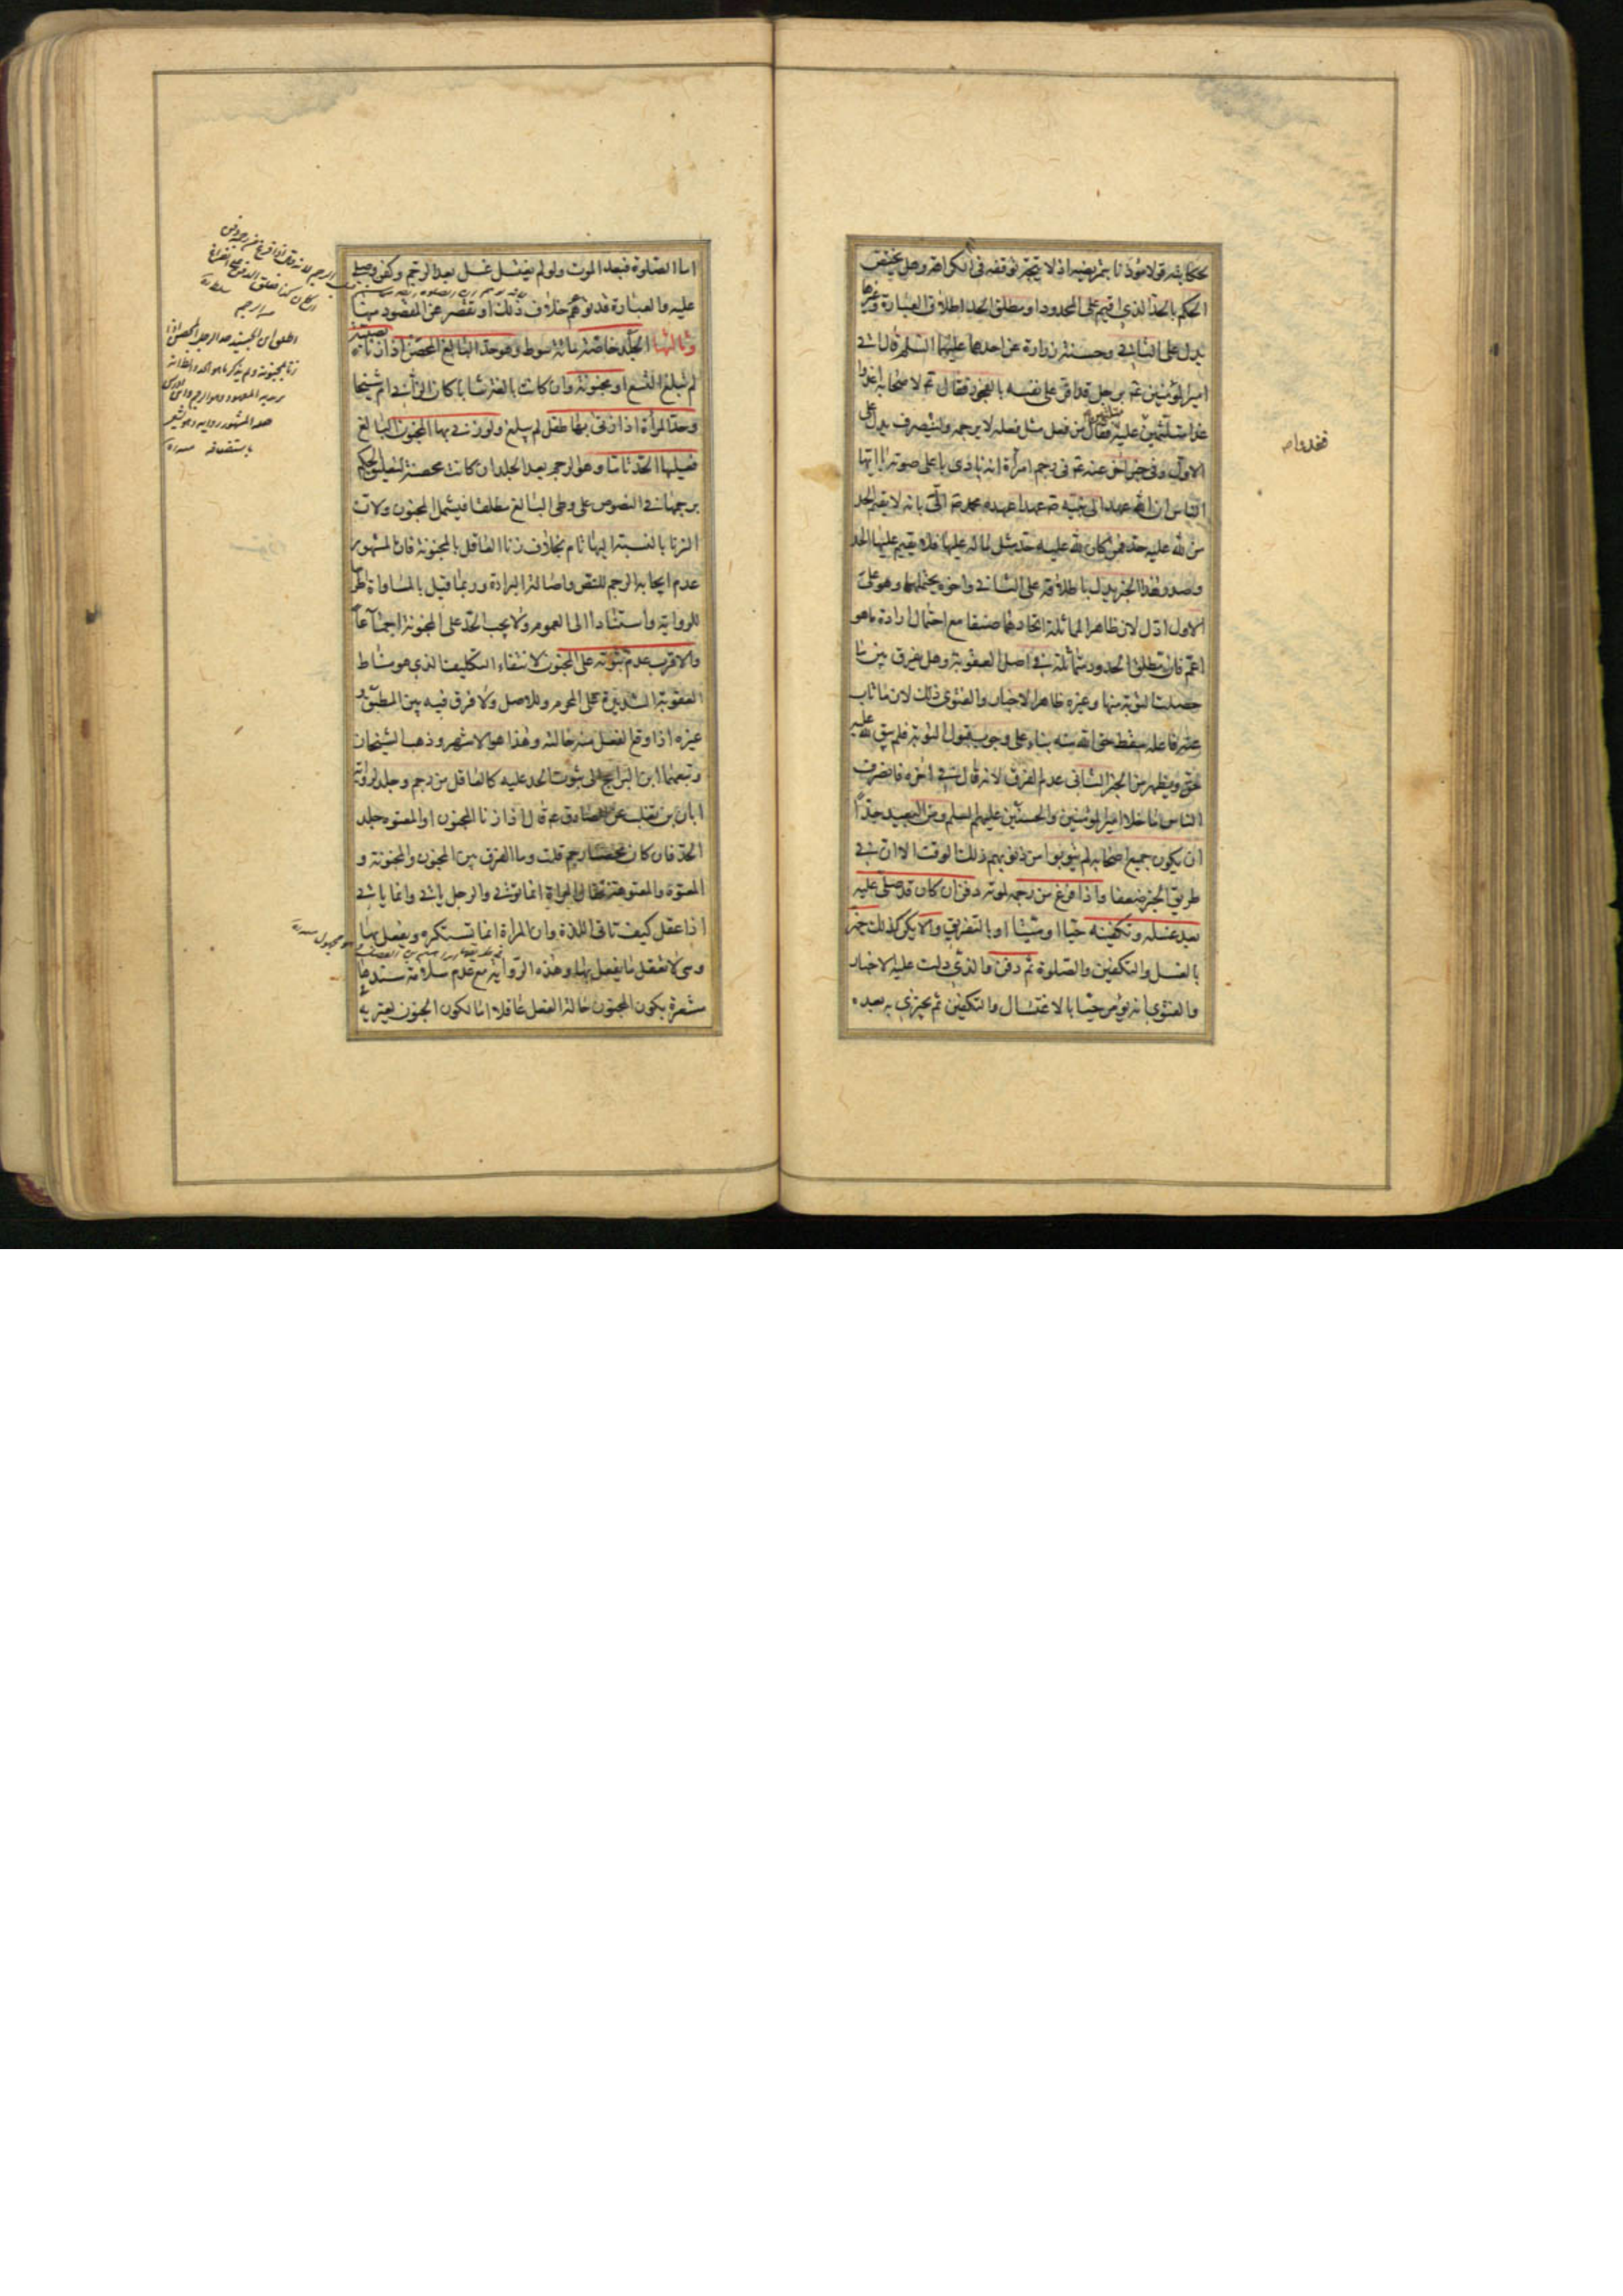 بحكايته قولا مؤذنا بتمريضه اذ لا يتجه توقفه في الكراهة وهل يختص
الحكم بالحد الذي اقيم على المحدود او مطلق الحد اطلاق العبارة وغيرها
يدل على الثاني وحسنة زرارة عن احدهما عليهما السلم قال اتي
امير المؤمنين ع برجل قد اقر على نفسه بالفجور فقال ع لاصحابه اغدوا
غدا متلثمين عليّ فقال من فعل مثل فعله لا يرجمه ولينصرف يدل على
الاول وفي خبر اخر عنه ع في رجم امرأة انه نادى باعلى صوته يا ايها
الناس ان الله عهد الى نبيه ص عهدا عهده محمد ص الىّ بانه لا يقيم الحد
من لله عليه حد فمن كان لله عليه حد مثل ما له عليها فلا يقيم عليها الحد
وصدر هذا الخبر يدل باطلاقه على الثاني واخره يحتملهما وهو على
الاول ادل لان ظاهر المماثلة اتحادهما صنفا مع احتمال ارادة ما هو
اعم فان مطلق الحدود متماثلة في اصل العقوبة وهل يفرق بين ما
حصلت التوبة منها وغيره ظاهر الاخبار والفتوى ذلك لان ما تاب
عنه فاعله سقط حق الله منه بناء على وجوب قبول التوبة فلم يبق لله عليه
حق ويظهر من الخبر الثاني عدم الفرق لانه قال في اخره فانصرف
الناس ما خلا امير المؤمنين والحسنين عليهم السلم ومن البعيد جدا
ان يكون جميع اصحابه لم يتوبوا من ذنوبهم ذلك الوقت الا ان في
طريق الخبر ضعفا واذا فرغ من رجمه لموته دفن ان كان قد صلى عليه
بعد غسله وتكفينه حيا او ميتا او بالتفريق والا يكن كذلك جهز
بالغسل والتكفين والصلوة ثم دفن والذي دلت عليه الاخبار
والفتوى انه يؤمر حيا بالاغتسال والتكفين ثم يجتزى به بعده
اما الصلوة فبعد الموت ولو لم يغتسل غسل بعد الرجم وكفن وصلى
عليه والعبارة قد توهم خلاف ذلك او تقصر عن المقصود منها
وثالثها الجلد خاصة مائة سوط وهو حد البالغ المحصن اذا زنا بصبية
لم تبلغ التسع او مجنونة وان كانت بالغة شابا كان الزاني ام شيخا
وحد المرأة اذا زنى بها طفل لم يبلغ ولو زنى بها المجنون البالغ
فعليها الحد تاما وهو الرجم بعد الجلد ان كانت محصنة لتعليق الحكم
برجمها في النصوص على وطى البالغ مطلقا فيشمل المجنون ولان
الزنا بالنسبة اليها تام بخلاف زنا العاقل بالمجنونة فان المشهور
عدم ايجابه الرجم للنص واصالة البراءة وربما قيل بالمساواة اطراحا
للرواية واستنادا الى العموم ولا يجب الحد على المجنونة اجماعا
والاقرب عدم ثبوته على المجنون لانتفاء التكليف الذي هو مناط
العقوبة الشديدة على المحرم وللاصل ولا فرق فيه بين المطبق و
غيره اذا وقع الفعل منه حالته وهذا هو الاشهر وذهب الشيخان
وتبعهما ابن البراج الى ثبوت الحد عليه كالعاقل من رجم وجلد لرواية
ابان بن تغلب عن الصادق ع قال اذا زنا المجنون او المعتوه جلد
الحد فان كان محصنا رجم قلت وما الفرق بين المجنون والمجنونة و
المعتوه والمعتوهة فقال المراة انما تؤتى والرجل ياتي وانما ياتي
اذا عقل كيف تاتى اللذة وان المراة انما تستكره ويفعل بها
وهي لا تعقل ما يفعل بها وهذه الرواية مع عدم سلامة سندها
مشعرة بكون المجنون حالة الفعل عاقلا اما لكون الجنون يعتريه